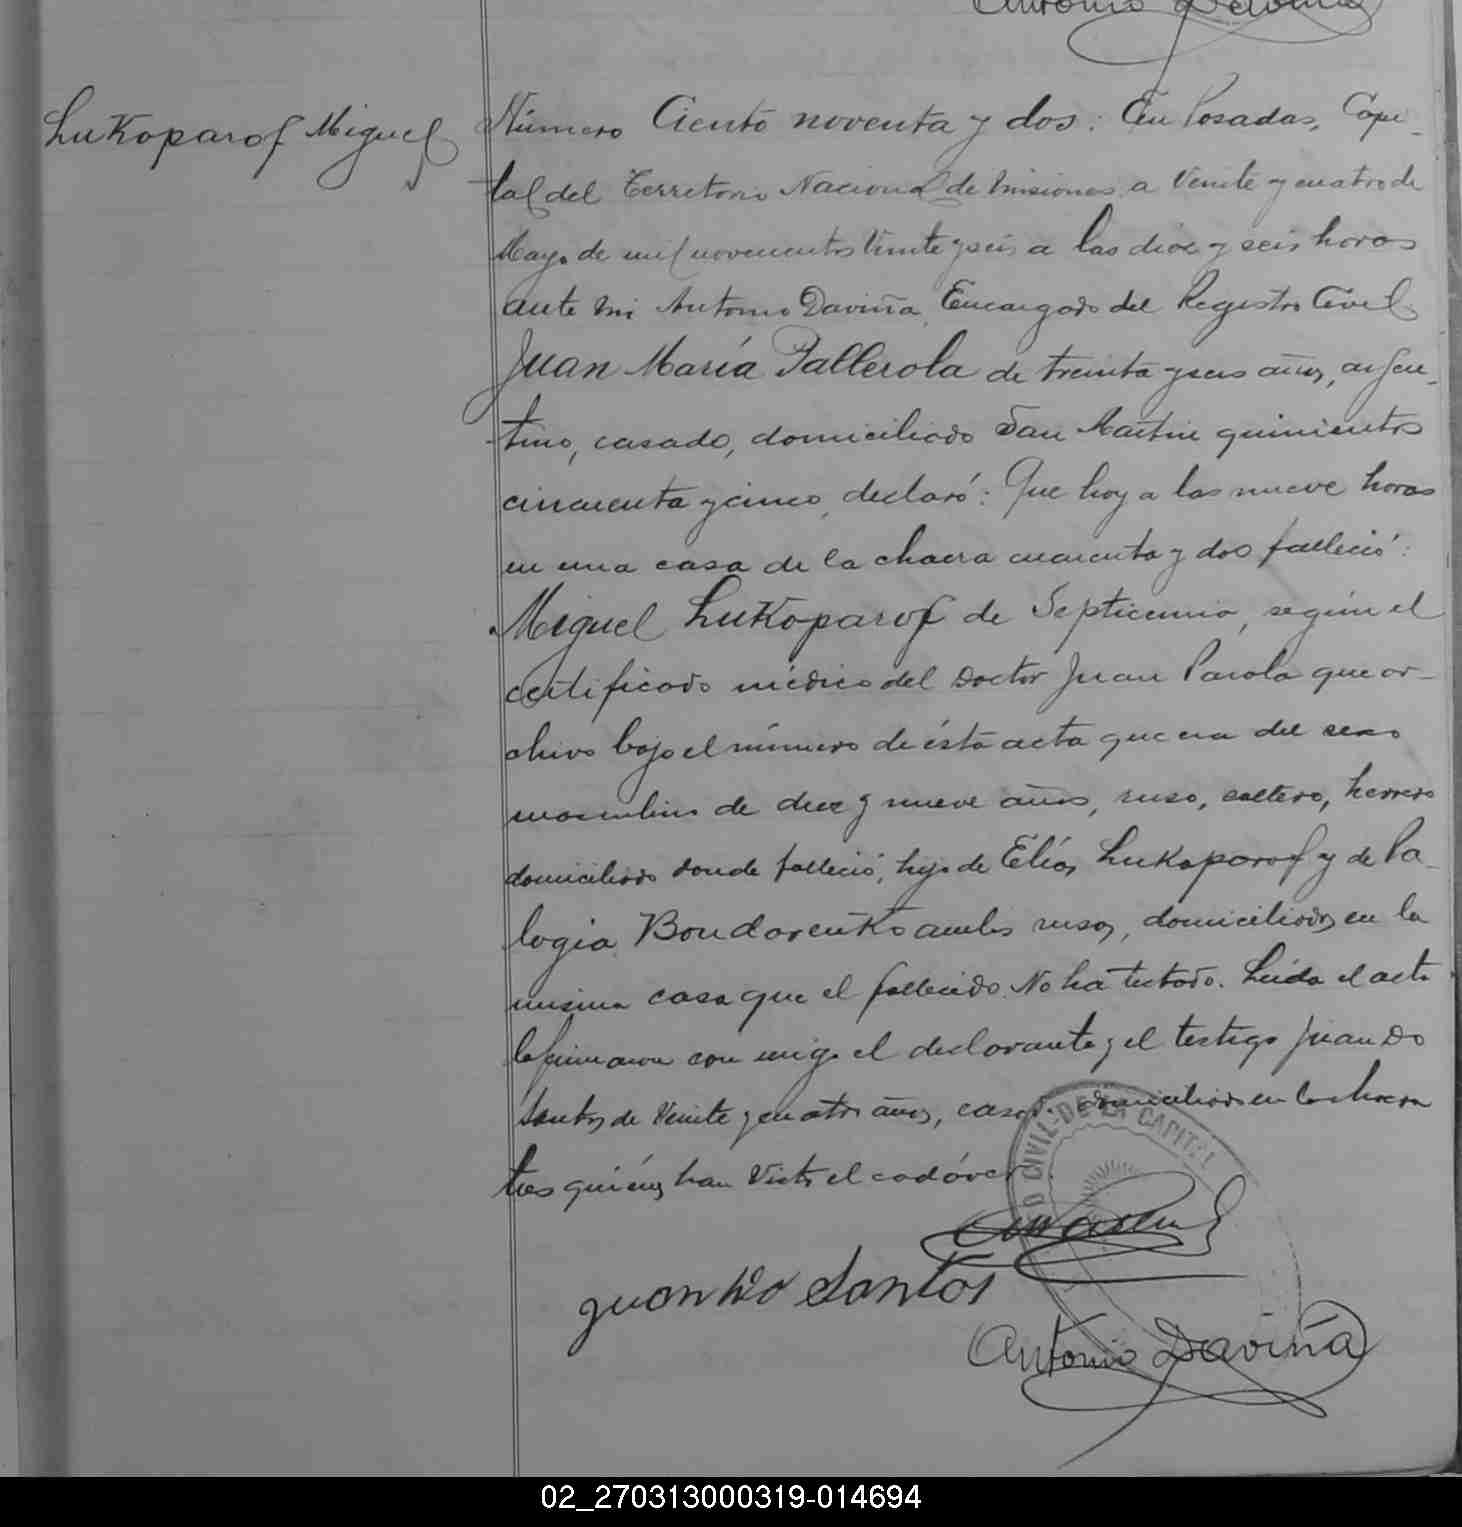 Antonio Daviña
Lukoparof Miguel
Número Ciento noventa y dos: En Posadas, Capi-
tal del Territorio Nacional de Misiones a Veinte y cuatro de
Mayo de mil novecientos Veinte y seis a las diez y seis horas
ante mi Antonio Daviña, Encargado del Registro Civil
Juan María Pallerola de treinta y seis años, argen-
tino, casado, domiciliado San Martin quinientos
cincuenta y cinco, declaró: Que hoy a las nueve horas
en una casa de la chacra cuarenta y dos falleció:
Miguel Lukoparof de Septicemia, según el
certificado médico del Doctor Juan Parola que ar-
chivo bajo el número de ésta acta que era del sexo
masculino de diez y nueve años, ruso, soltero, herrero
domiciliado donde falleció, hijo de Elías Lukoparof y de Pa-
logia Bondarenko ambos rusos, domiciliados en la
misma casa que el fallecido. No ha testado. Leída el acta
la firmaron con migo el declarante y el testigo Juan Do
Santos de Veinte y cuatro años, casado domiciliado en la chacra
tres quiénes han Visto el cadáver
CIVIL DE LA CAPITAL
Juan Do Santos
Antonio Daviña
02_270313000319-014694